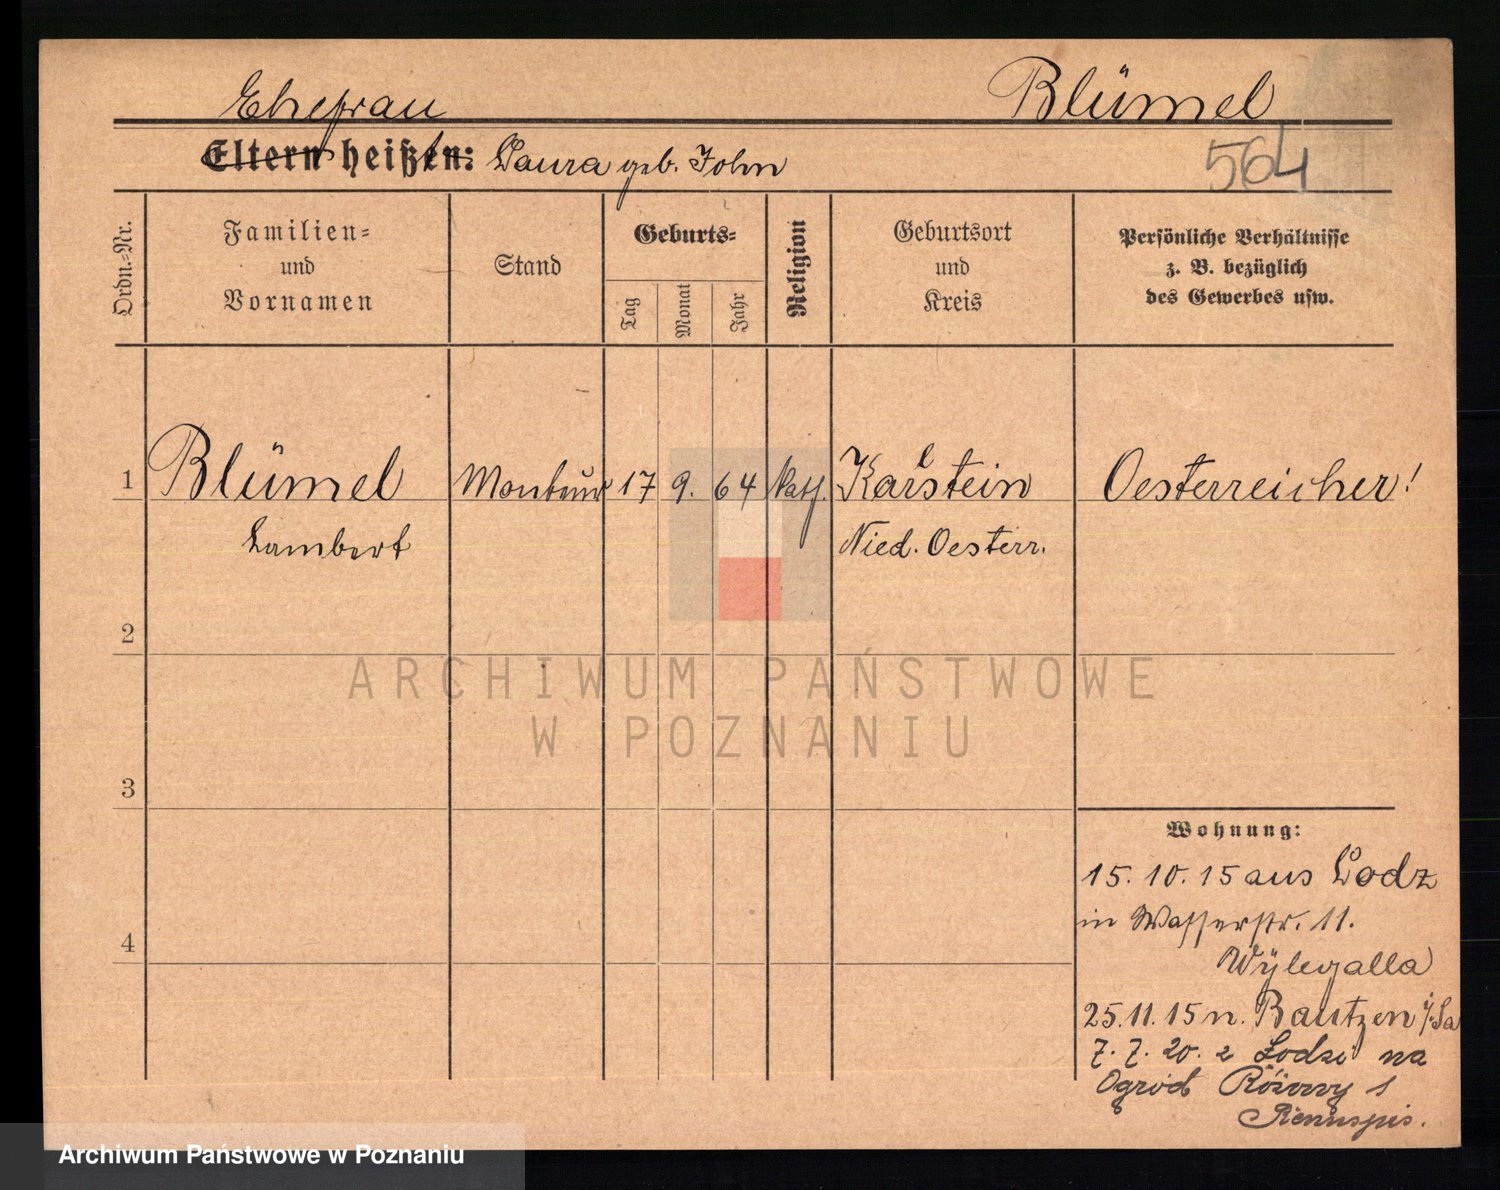 Ehefrau
Blümel
Eltern heißen: Laura geb. John
564
Ordn.-Nr.
Familien-
und
Vornamen
Stand
Geburts-
Tag
Monat
Jahr
Religion
Geburtsort
und
Kreis
Persönliche Verhältnisse
z. B. bezüglich
des Gewerbes usw.
1 Blümel Monteur 17 9. 64 Kath. Karlstein Oesterreicher!
Lambert Nied. Oesterr.
2
ARCHIWUM PAŃSTWOWE
W POZNANIU
3
Wohnung:
15. 10. 15 aus Lodz
in Wasserstr. 11.
4
Wylegalla
25. 11. 15 n. Bautzen i/Sa
7. 7. 20. z Lodzi na
Ogród Różowy 1
Archiwum Państwowe w Poznaniu